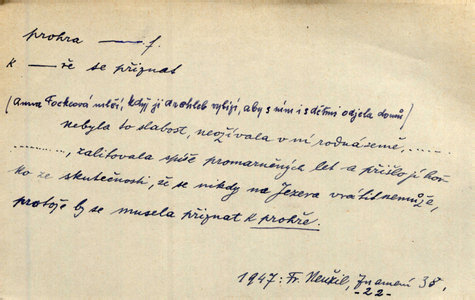 prohra —— f.
k —ře se přiznat
(Anna Focková mlčí, když ji drahleb vybízí, aby s ním i s dětmi odjela domů)
nebyla to slabost, neozývala v ní rodná země, ......
.........., zalitovala spíše promarněných let a přišlo jí hoř-
ko ze skutečnosti, že se nikdy na Jezera vrátit nemůže,
protože by se musela přiznat k prohře.
1947: Fr. Neužil, Znamení 38,
-22-